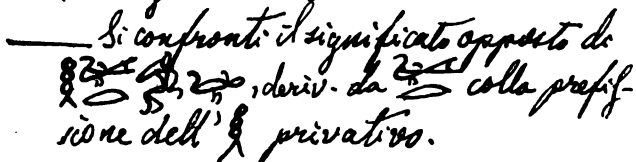 Si confronti il significato opposto di
, deriv. da colla prefis-
sione dell' privativo.